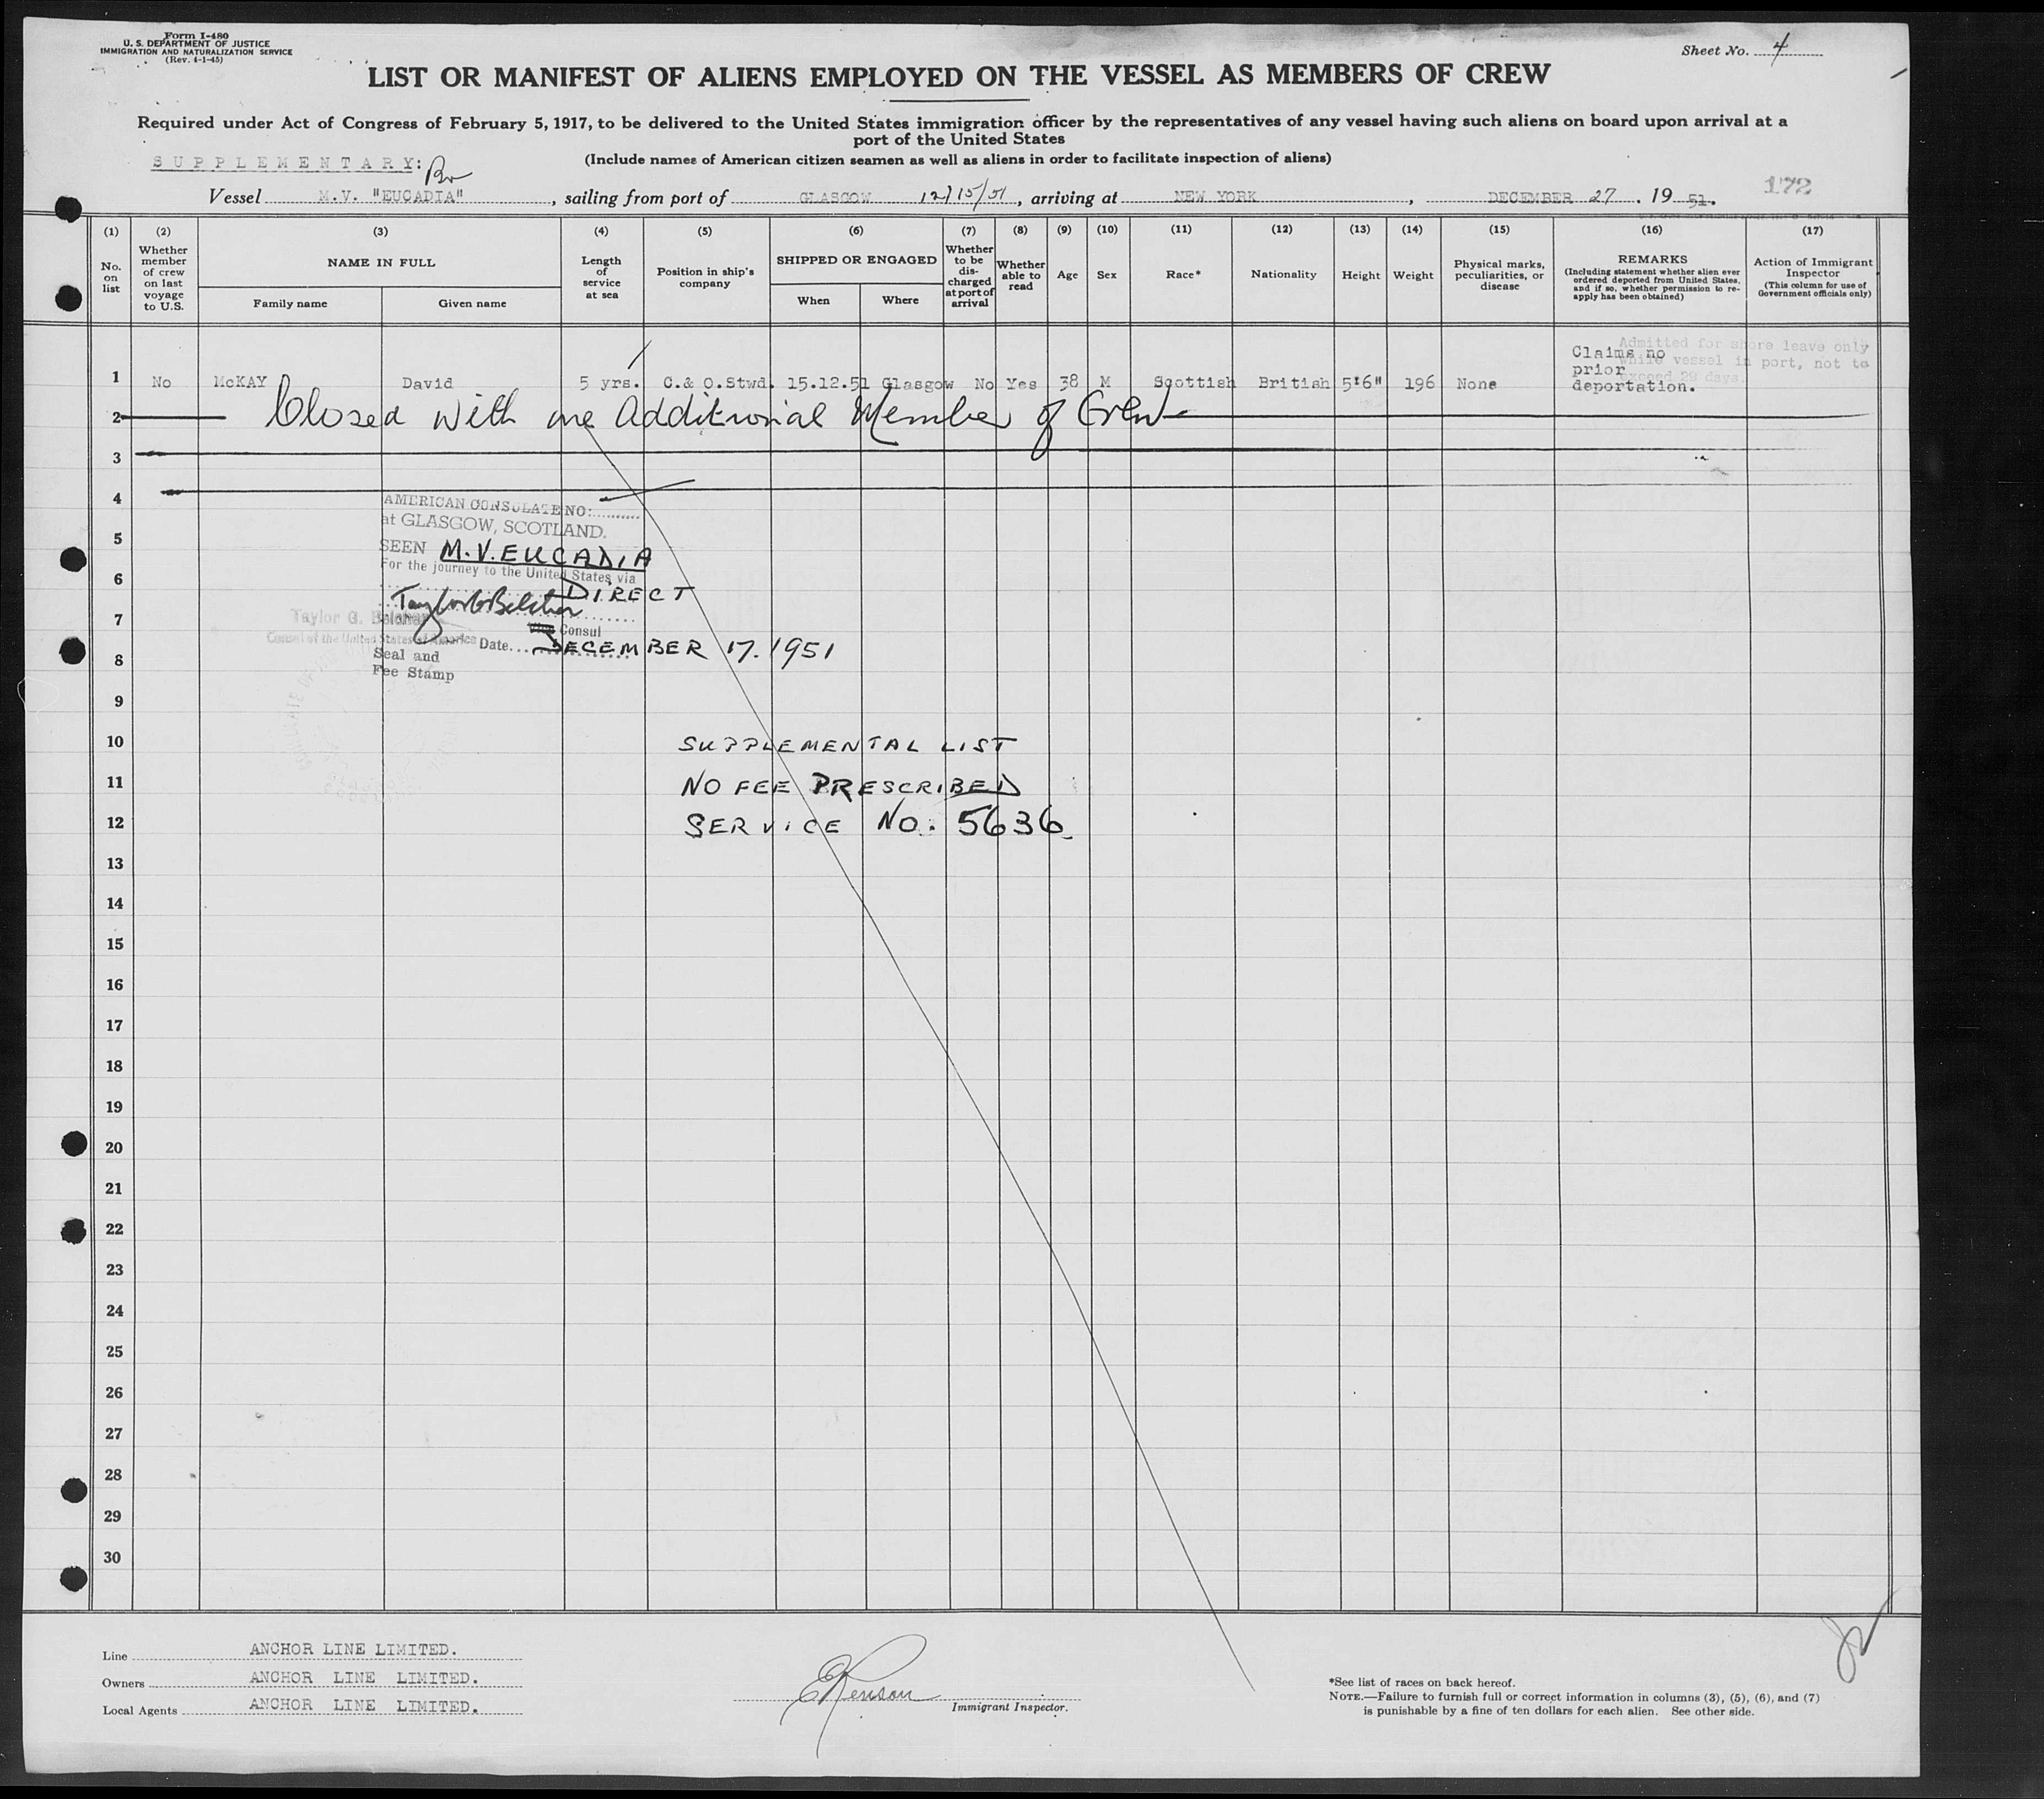 Form I-480
U. S. DEPARTMENT OF JUSTICE
IMMIGRATION AND NATURALIZATION SERVICE
(Rev. 4-1-45)
Sheet No. 4
LIST OR MANIFEST OF ALIENS EMPLOYED ON THE VESSEL AS MEMBERS OF CREW
Required under Act of Congress of February 5, 1917, to be delivered to the United States immigration officer by the representatives of any vessel having such aliens on board upon arrival at a
port of the United States
(Include names of American citizen seamen as well as aliens in order to facilitate inspection of aliens)
SUPPLEMENTARY:
Vessel M.V. "EUCADIA", sailing from port of GLASGOW 12/15/51, arriving at NEW YORK, DECEMBER 27. 19 51.
172
(1) No. on list
(2) Whether member of crew on last voyage to U.S.
(3) NAME IN FULL
Family name
Given name
(4) Length of service at sea
(5) Position in ship's company
(6) SHIPPED OR ENGAGED
When
Where
(7) Whether to be discharged at port of arrival
(8) Whether able to read
(9) Age
(10) Sex
(11) Race*
(12) Nationality
(13) Height
(14) Weight
(15) Physical marks, peculiarities, or disease
(16) REMARKS
(Including statement whether alien ever ordered deported from United States, and if so, whether permission to re-apply has been obtained)
(17) Action of Immigrant Inspector
(This column for use of Government officials only)
1 No McKAY David 5 yrs. C.& O.Stwd. 15.12.51 Glasgow No Yes 38 M Scottish British 5'6" 196 None
Claims no
prior
deportation.
Admitted for shore leave only
while vessel in port, not to
exceed 29 days.
2 Closed with one Additional Member of Crew
3
4
AMERICAN CONSULATE NO:
at GLASGOW, SCOTLAND.
5
SEEN M.V. EUCADIA
For the journey to the United States via
6
DIRECT
Taylor G Belcher
7
Taylor G. Belcher
Vice Consul
Consul of the United States of America
Date DECEMBER 17. 1951
8
Seal and
Fee Stamp
9
10 SUPPLEMENTAL LIST
11 NO FEE PRESCRIBED
12 SERVICE NO. 5636
13
14
15
16
17
18
19
20
21
22
23
24
25
26
27
28
29
30
Line ANCHOR LINE LIMITED.
Owners ANCHOR LINE LIMITED.
Local Agents ANCHOR LINE LIMITED.
Immigrant Inspector.
*See list of races on back hereof.
NOTE.—Failure to furnish full or correct information in columns (3), (5), (6), and (7)
is punishable by a fine of ten dollars for each alien. See other side.